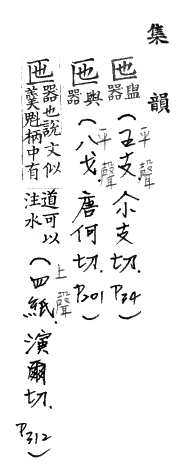 集韻
匜盥器(五支平聲尒支切.P34)
匜與器(八戈平聲唐何切.P201)
匜器也說文似羹魁柄中有道可以注水(四紙上聲.演爾切.P312)